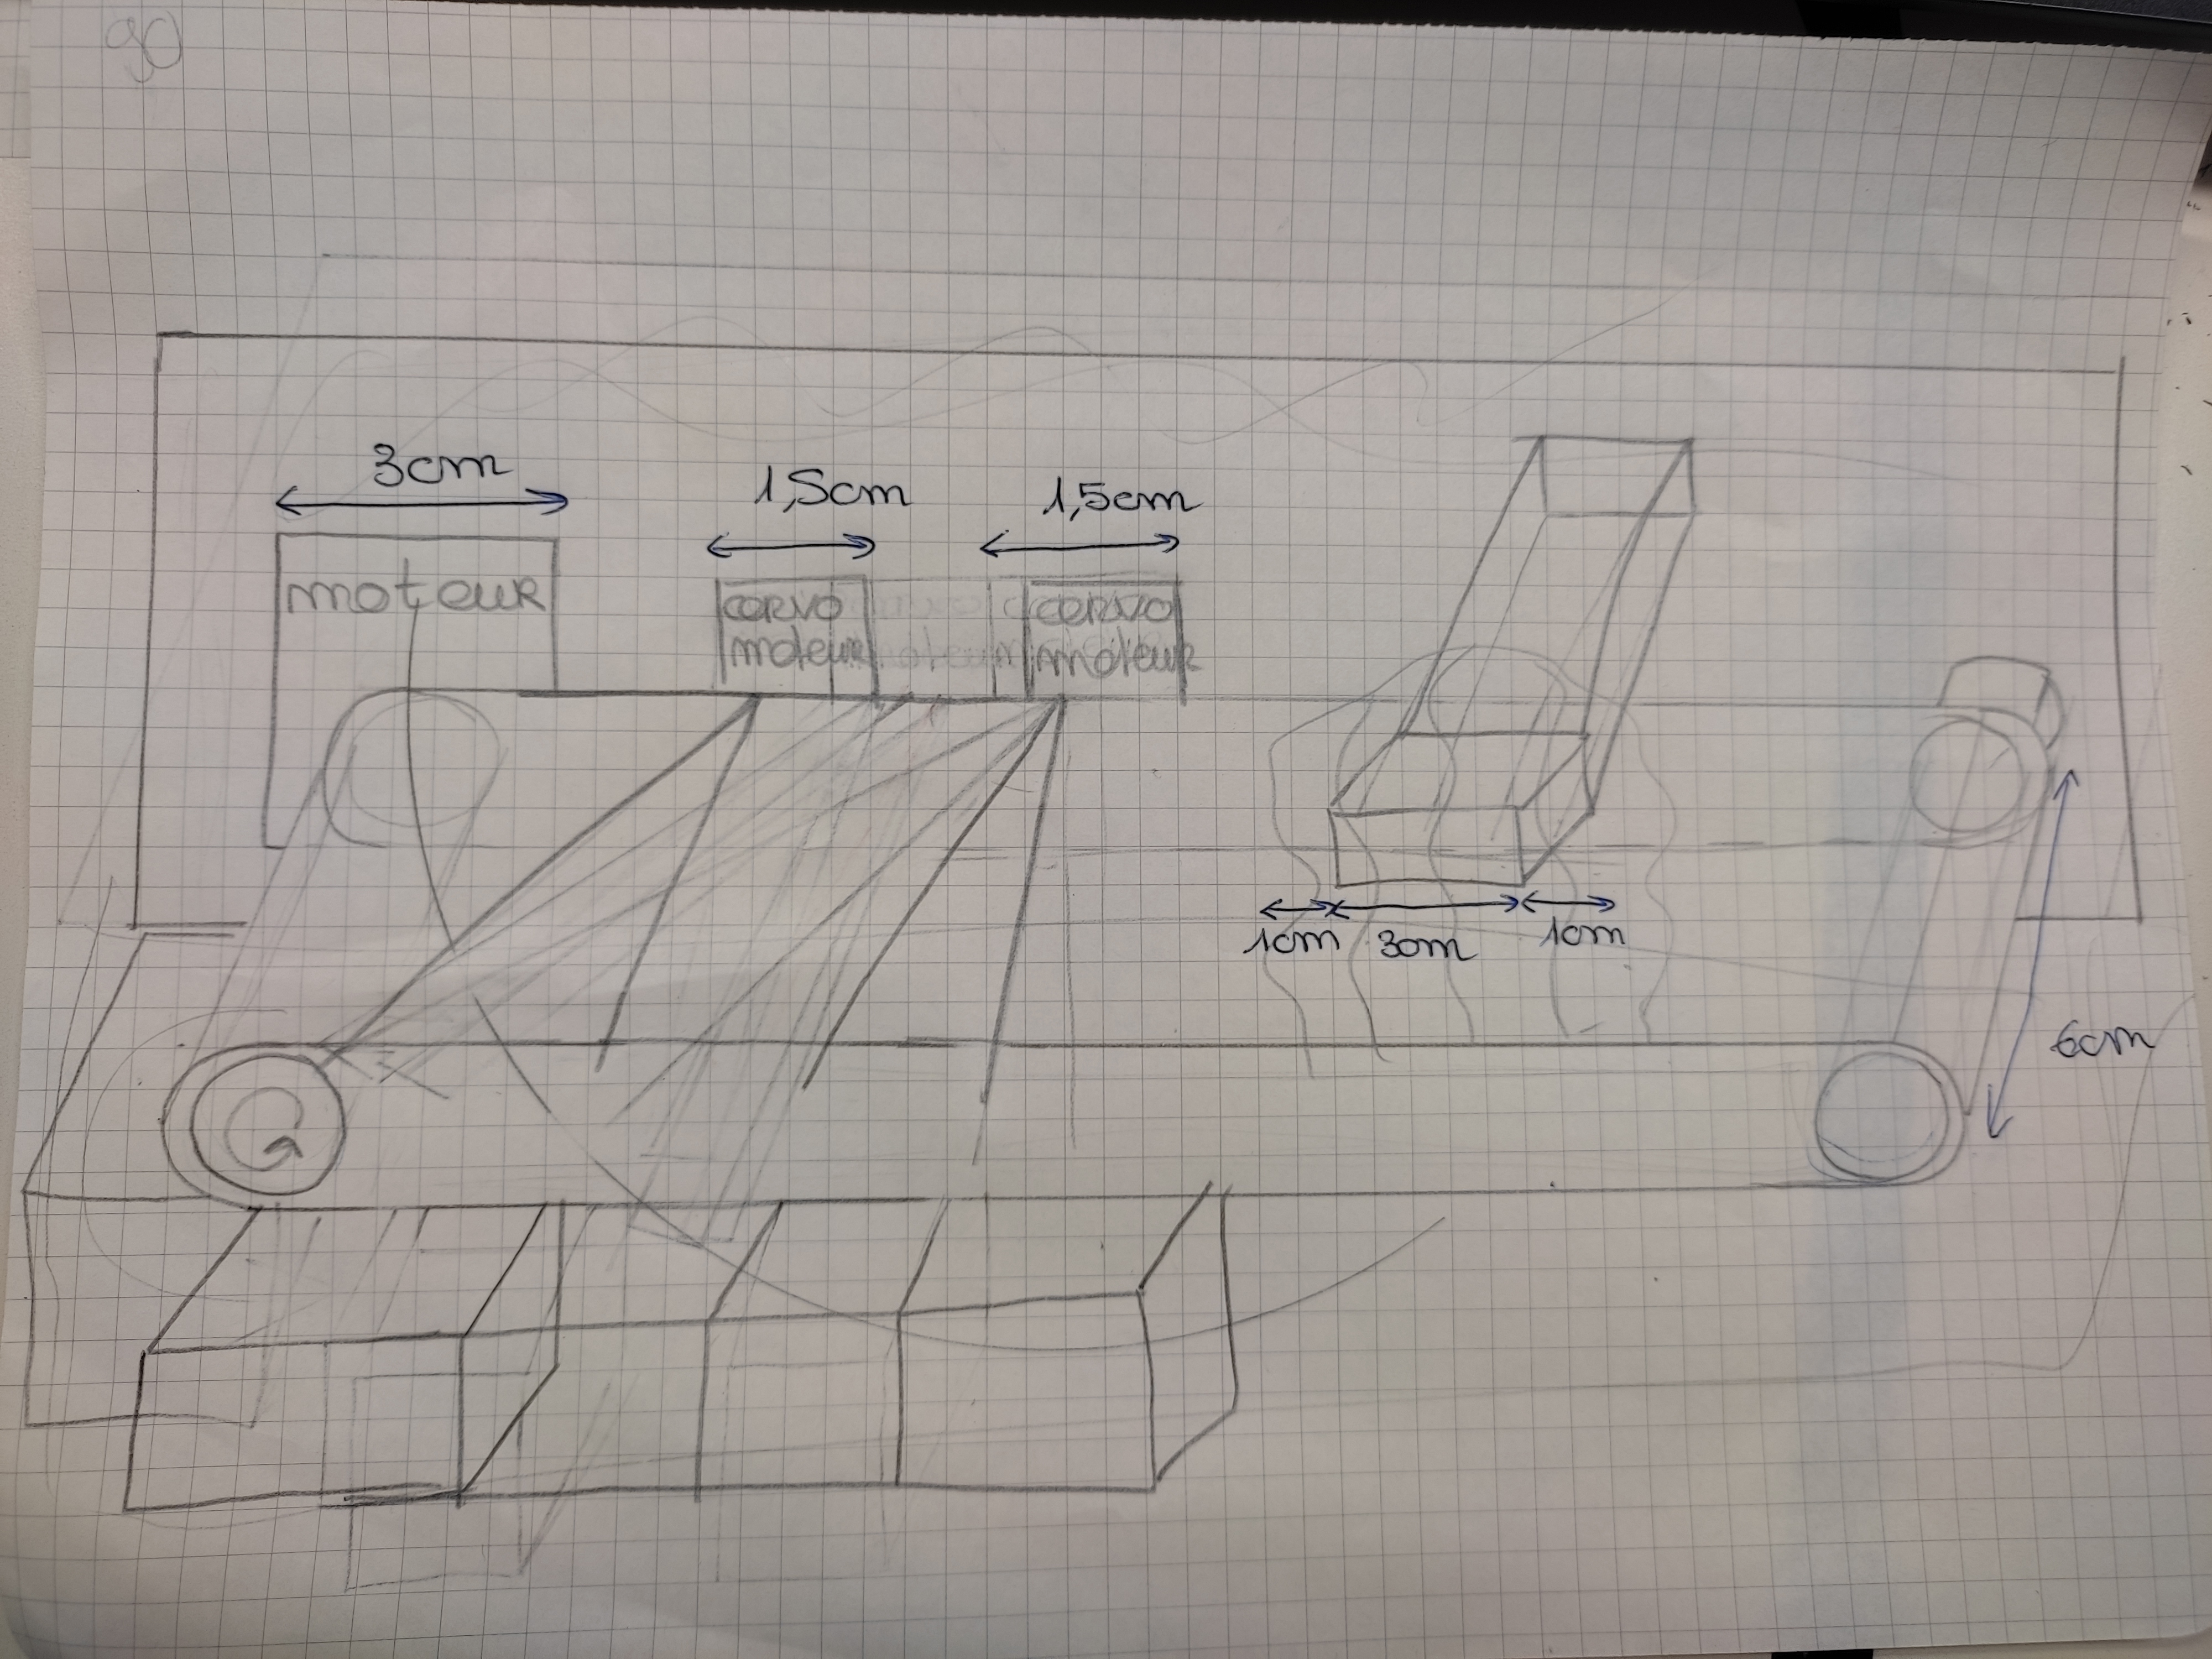 3cm
1,5cm
1,5cm
moteur
cervo
moteur
cervo
moteur
1cm
3cm
1cm
6cm